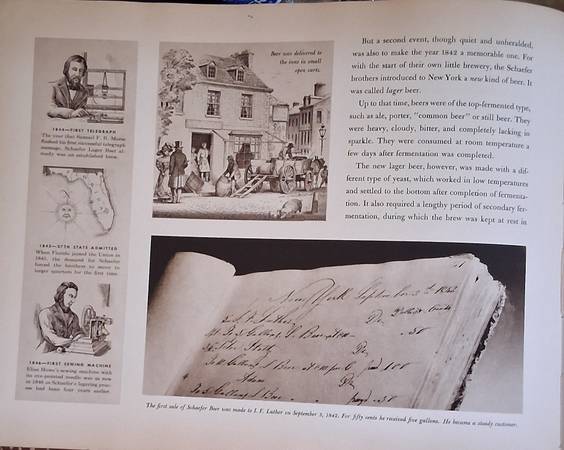 1844—FIRST TELEGRAPH
The year that Samuel F. B. Morse
flashed his first successful telegraph
message, Schaefer Lager Beer al-
ready was an established brew.
1845—27TH STATE ADMITTED
When Florida joined the Union in
1845, the demand for Schaefer
forced the brothers to move to
larger quarters for the first time.
1846—FIRST SEWING MACHINE
Elias Howe's sewing machine with
its eye-pointed needle was as new
in 1846 as Schaefer's lagering proc-
ess had been four years earlier.
Beer was delivered to
the inns in small
open carts.
But a second event, though quiet and unheralded,
was also to make the year 1842 a memorable one. For
with the start of their own little brewery, the Schaefer
brothers introduced to New York a new kind of beer. It
was called lager beer.
Up to that time, beers were of the top-fermented type,
such as ale, porter, "common beer" or still beer. They
were heavy, cloudy, bitter, and completely lacking in
sparkle. They were consumed at room temperature a
few days after fermentation was completed.
The new lager beer, however, was made with a dif-
ferent type of yeast, which worked in low temperatures
and settled to the bottom after completion of fermenta-
tion. It also required a lengthy period of secondary fer-
mentation, during which the brew was kept at rest in
New York September 3
Luther Dr
To 5 Gallons Beer 50
Dr
Gallons Beer 100
Dr
To 5 Gallons Beer 50
The first sale of Schaefer Beer was made to I. F. Luther on September 3, 1842. For fifty cents he received five gallons. He became a steady customer.